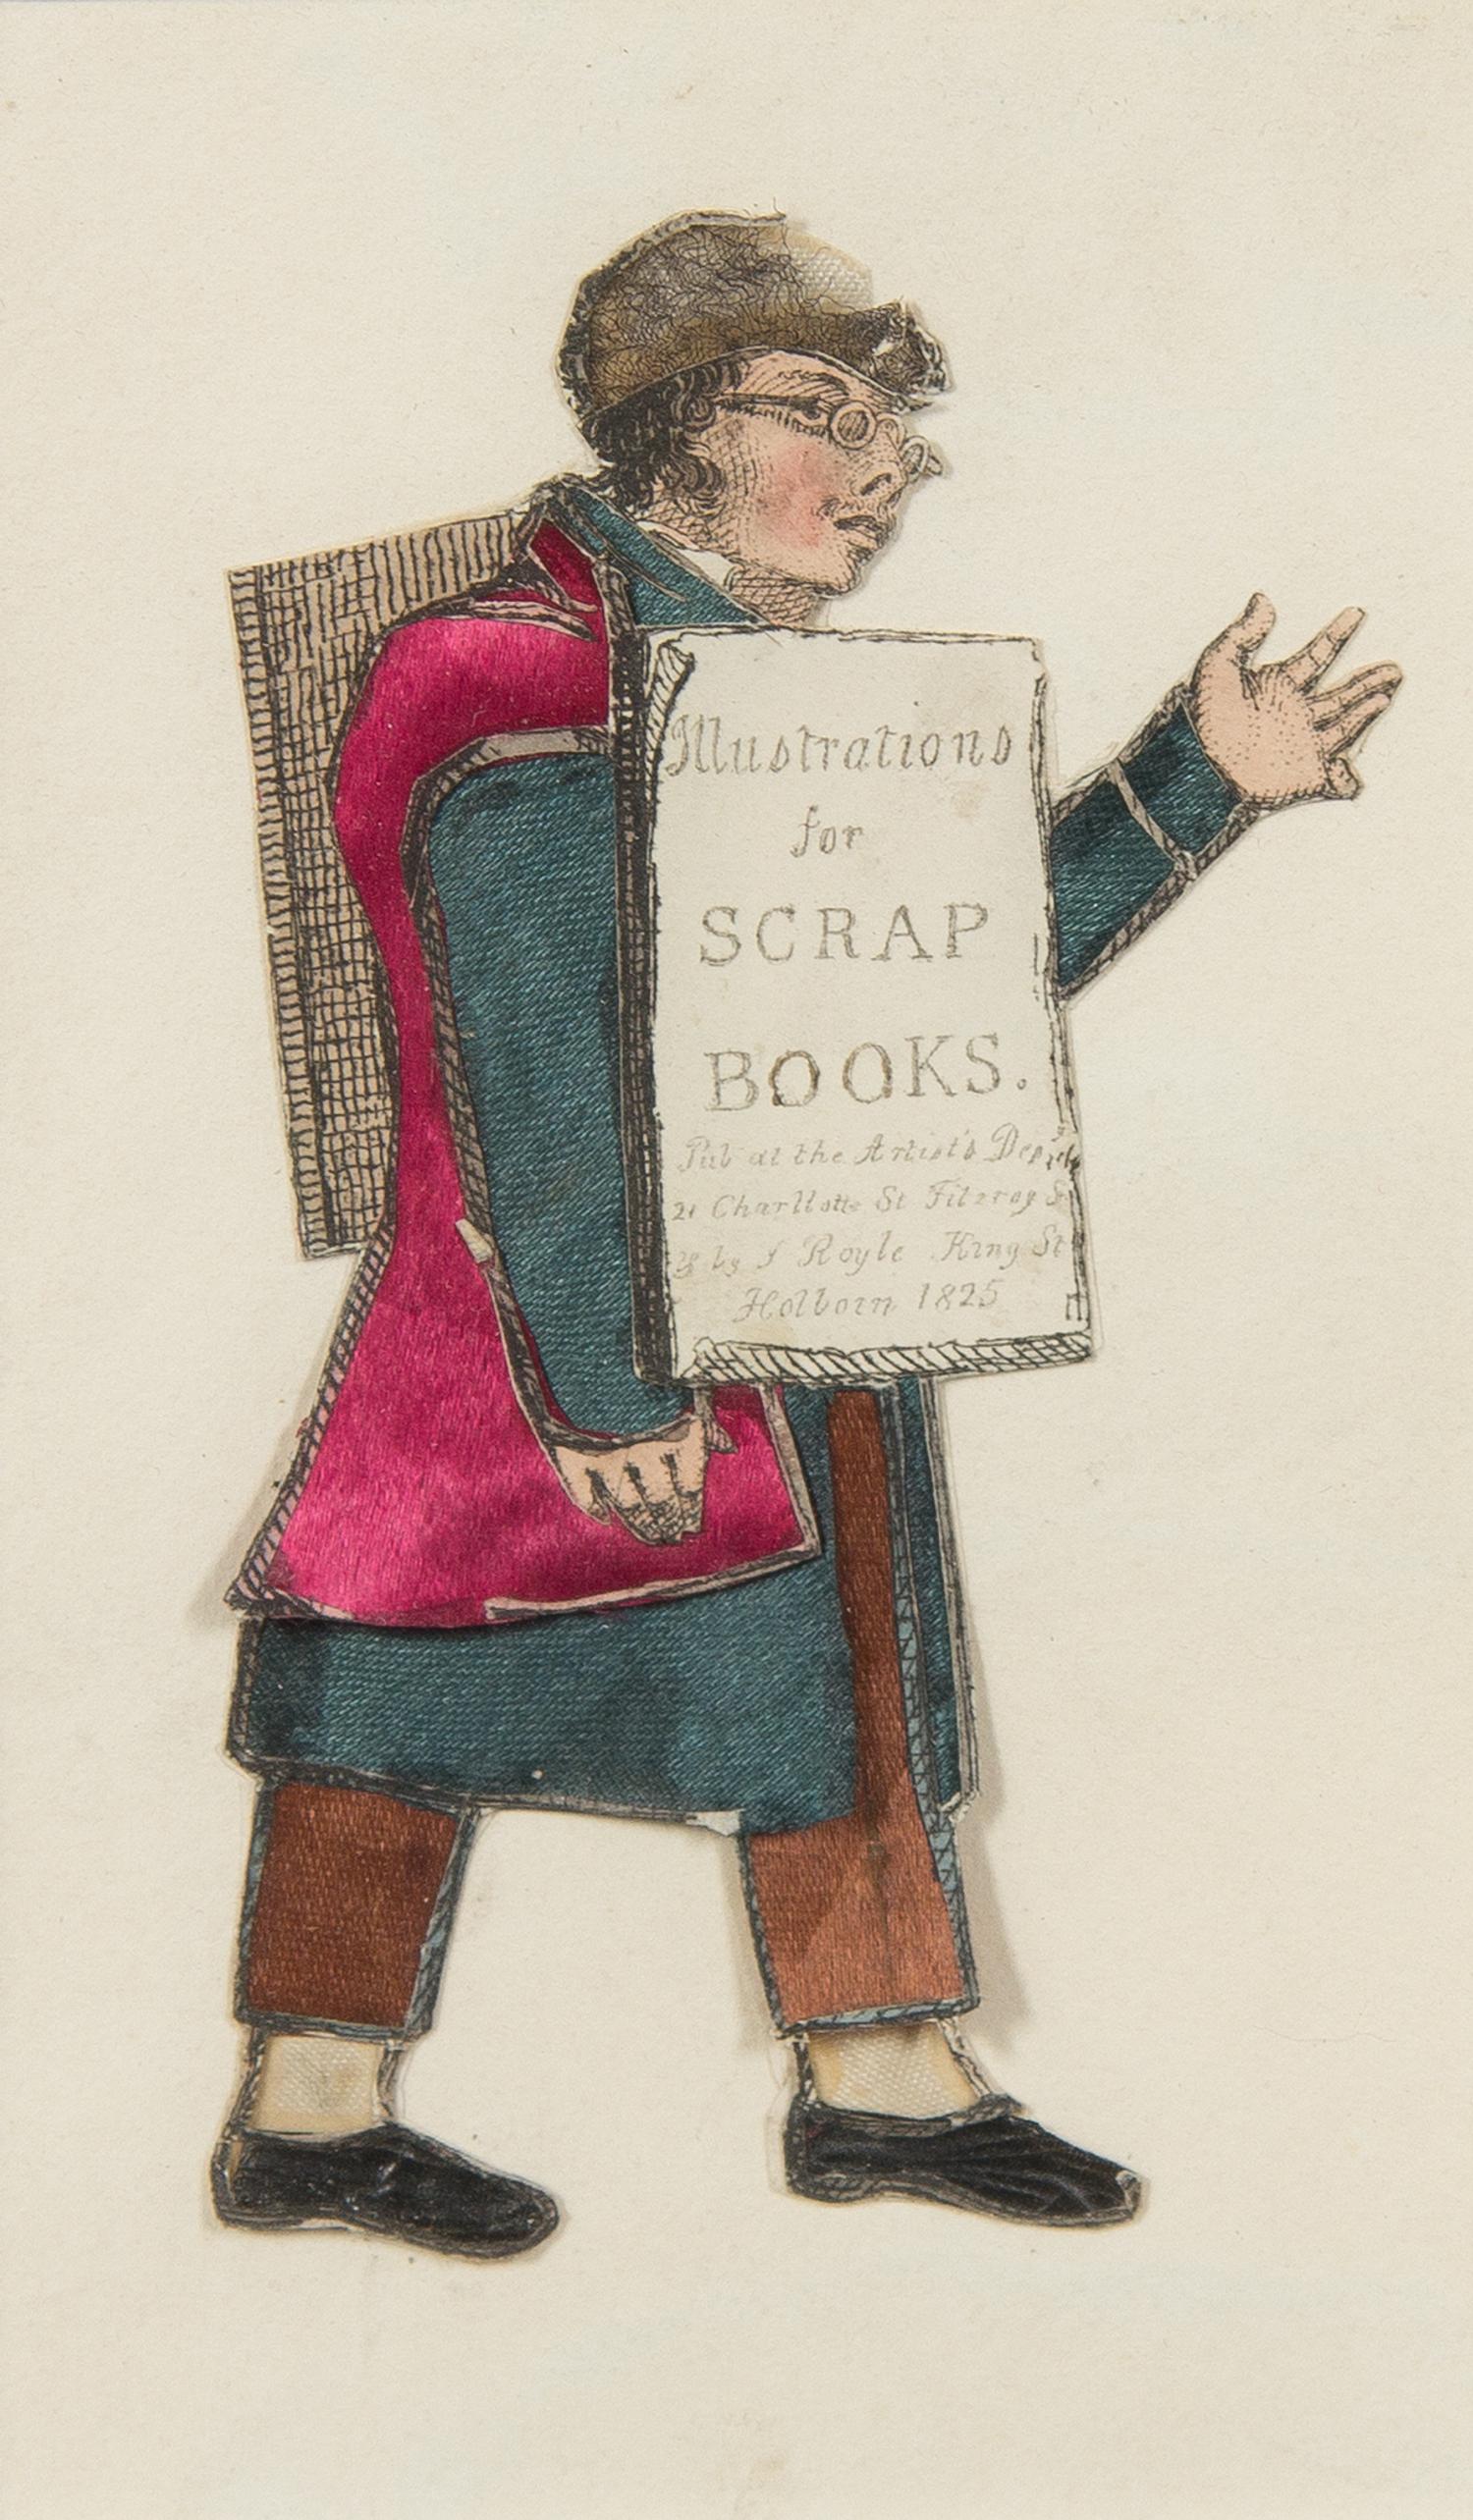 Illustrations
for
SCRAP
BOOKS.
Pub at the Artist's
21 Charllotte St Fitzroy
by J Royle King St
Holborn 1825